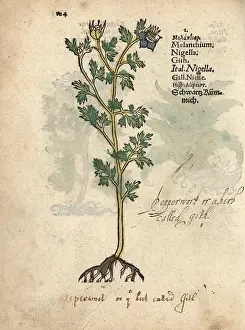 164
1.
Melanchium,
Nigella,
Gith.
Ital. Nigella,
Gall. Nielle.
Schwartz Küm-
mich.
pepperwort or a herb
called gith
peperwort or yͤ herb called Gith